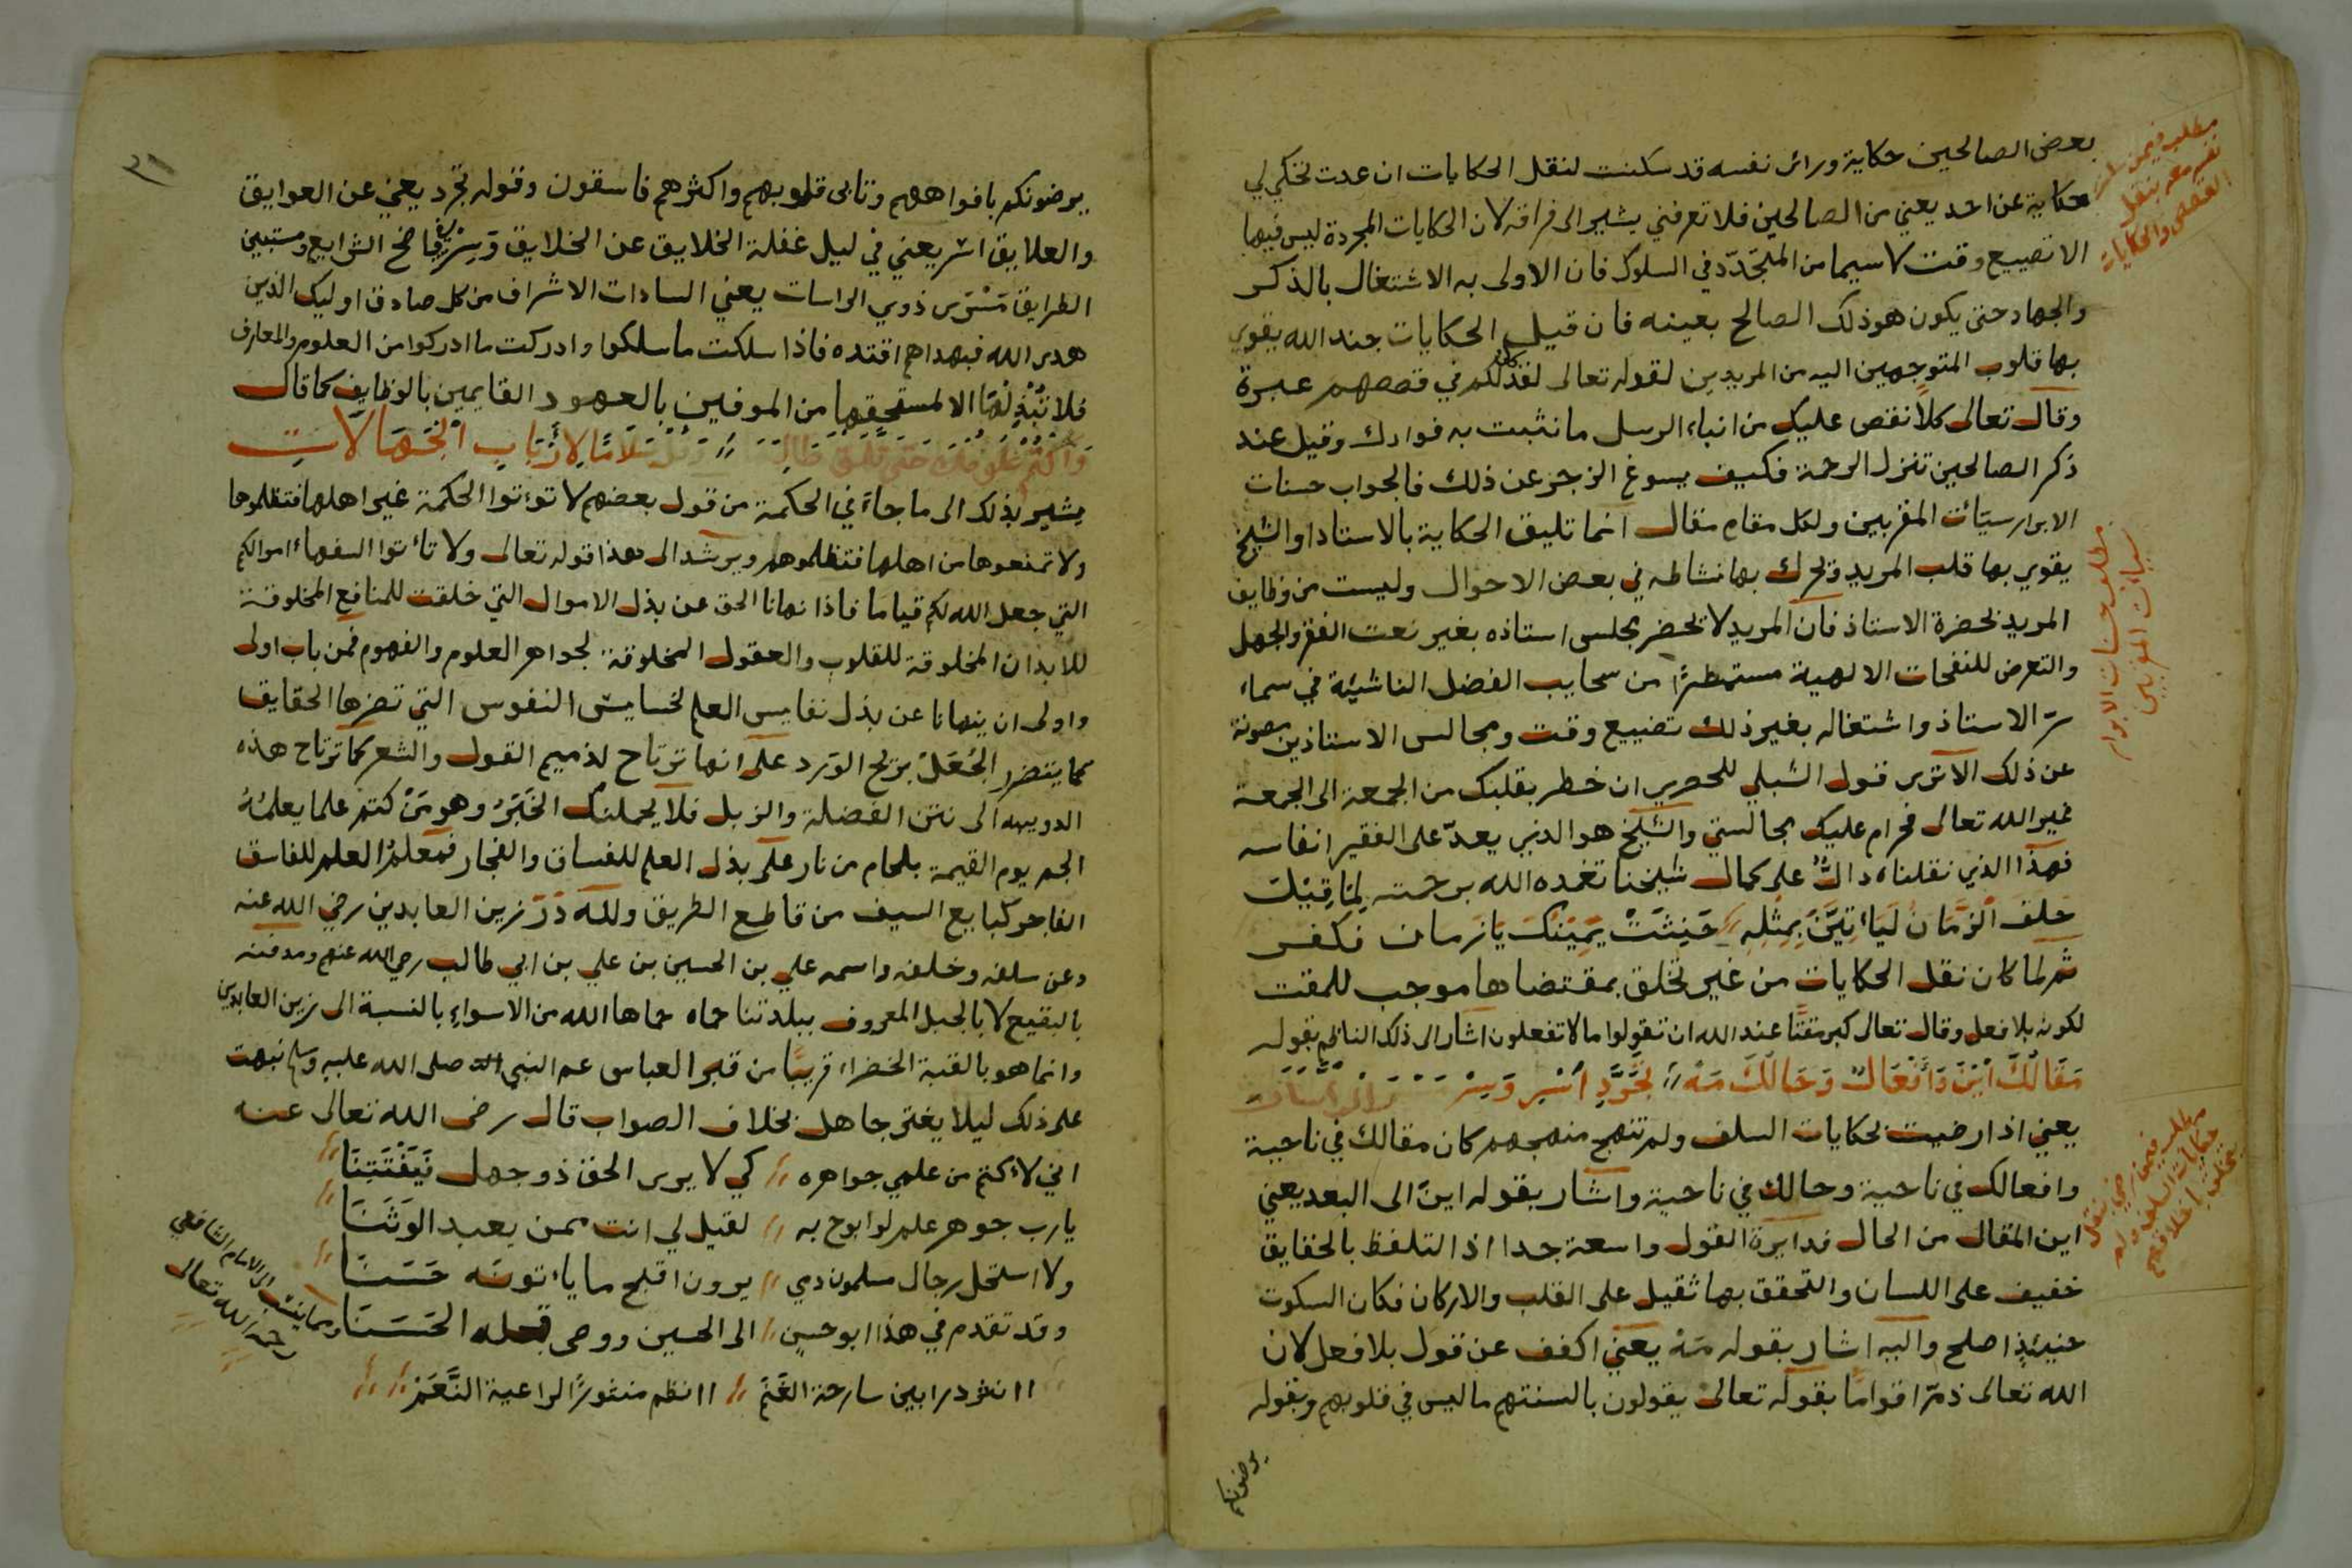 بعض الصالحين حكاية وراى نفسه قد سكنت لنقل الحكايات ان عدت تحكي لي
حكاية عن احد يعني من الصالحين فلا تعرفني يشير الى فراقه لان الحكايات المجردة ليس فيها
الا تضييع وقت لا سيما من المتجدّد في السلوك فان الاولى به الاشتغال بالذكر
والجهاد حتى يكون هو ذلك الصالح بعينه فان قيل الحكايات جند الله يقوي
بها قلوب المتوجهين اليه من المريدين لقوله تعالى لقد كان لكم في قصصهم عبرة
وقال تعالى كلا نقص عليك من انباء الرسل ما نثبت به فوادك وقيل عند
ذكر الصالحين تنزل الرحمة فكيف يسوغ الزجر عن ذلك فالجواب حسنات
الابرار سيّات المقربين ولكل مقام مقال انما تليق الحكاية بالاستاد او الشيخ
يقوي بها قلب المريد وتحرك بها نشاطه في بعض الاحوال وليست من وظايف
المريد بحضرة الاستاذ فان المريد لا يحضر مجلس استاذه بغير نعت الفقر والجهل
والتعرض للنفحات الالهية مستمطرًا من سحايب الفضل الناشيئة في سماء
سرّ الاستاذ واشتغاله بغير ذلك تضييع وقت ومجالس الاستاذين مصونة
عن ذلك الا ترى قول الشبلي للحصري ان خطر بقلبك من الجمعة الى الجمعة
غير الله تعالى فحرام عليك مجالستي والشيخ هو الذي يعدّ على الفقير انفاسه
فهذا الذي نقلناه دالّ على كمال شيخنا تغمده الله برحمته لما قيل
حلف الزمان لياتينّ بمثله // حنثت يمينك يا زمان فكفر
ثم لما كان نقل الحكايات من غير تخلق بمقتضاها موجب للمقت
لكونه بلا فعل وقال تعالى كبر مقتًا عند الله ان تقولوا ما لا تفعلون اشار الى ذلك الناظم بقوله
مقالك اين وافعال وحالك مه // تجرّد اسر وسر
يعني اذا رضيت بحكايات السلف ولم تنهج منهجهم كان مقالك في ناحية
وافعالك في ناحية وحالك في ناحية واشار بقوله اين الى البعد يعني
اين المقال من الحال فدايرة القول واسعة جدا اذ التلفظ بالحقايق
خفيف على اللسان والتحقق بها ثقيل على القلب والاركان فكان السكوت
حينيذ اصلح واليه اشار بقوله مه يعني اكفف عن قول بلا فعل لان
الله تعالى ذمّ اقواما بقوله تعالى يقولون بالسنتهم ما ليس في قلوبهم وبقوله
يرضونكم
مطلب فيمن سكنت
نفسه معه بنقل
القصص والحكايات
مطلب حسنات الابرار
سيات المقربين
مطلب فيمن رضي بنقل
حكايات السلف ولم
يتخلق باخلاقهم
٣١
يرضونكم بافواههم وتابى قلوبهم واكثرهم فاسقون وقوله تجرد يعني عن العوايق
والعلايق اسر يعني في ليل غفلة الخلايق عن الخلايق وسر في واضح الشرايع ومستبين
الطرايق مسرى ذوي الراسات يعني السادات الاشراف من كل صادق اوليك الذين
هدى الله فبهداهم اقتده فاذا سلكت ما سلكوا وادركت ما ادركوا من العلوم والمعارف
فلا تبذلها الا لمستحقها من الموفين بالعهود القايمين بالوظايف كما قال
واكتم علومك حتى تلق طالبها // وقل سلاما لارباب الجهالات
يشير بذلك الى ما جاء في الحكمة من قول بعضهم لا توتوا الحكمة غير اهلها فتظلموها
ولا تمنعوها من اهلها فتظلموهم ويرشد الى هذا قوله تعالى ولا تاتوا السفهاء اموالكم
التي جعل الله لكم قياما فاذا نهانا الحق عن بذل الاموال التي خلقت للمنافع المخلوقة
للابدان المخلوقة للقلوب والعقول المخلوقة لجواهر العلوم والفهوم فمن باب اولى
واولى ان ينهانا عن بذل نفايس العلم لخسايس النفوس التي تضرها الحقايق
كما يتضرر الجُعَل بريح الورد على انها ترتاح لذميم القول والشعر كما ترتاح هذه
الدويبه الى نتن الفضلة والزبل فلا يحملنك الخبر وهو من كتم علما يعلمه
الجم يوم القيمة بلجام من نار على بذل العلم للفساق والفجار فمعلم العلم للفاسق
الفاجر كبايع السيف من قاطع الطريق ولله درّ زين العابدين رضي الله عنه
وعن سلفه وخلفه واسمه علي بن الحسين بن علي بن ابي طالب رضي الله عنهم ومدفنه
بالبقيع لا بالجبل المعروف ببلدتنا حماه حماها الله من الاسواء بالنسبة الى زين العابدين
وانما هو بالقبة الخضراء قريبًا من قبر العباس عم النبي صلى الله عليه وسلم نبهت
على ذلك ليلا يغتر جاهل بخلاف الصواب قال رضي الله تعالى عنه
اني لاكتم من علمي جواهره // كي لا يرى الحق ذو جهل فيفتتنا //
يا رب جوهر علم لو ابوح به // لقيل لي انت ممن يعبد الوثنا //
ولا استحل رجال مسلمون دمي // يرون اقبح ما ياتونه حسنا //
وقد تقدم في هذا ابو حسن // الى الحسين ووصى قبله الحسنا
ومما ينسب الى الامام الشافعي
رحمه الله تعالى
اانثر درا بين سارحة الغنم // اانظم منثورًا لراعية النعم //